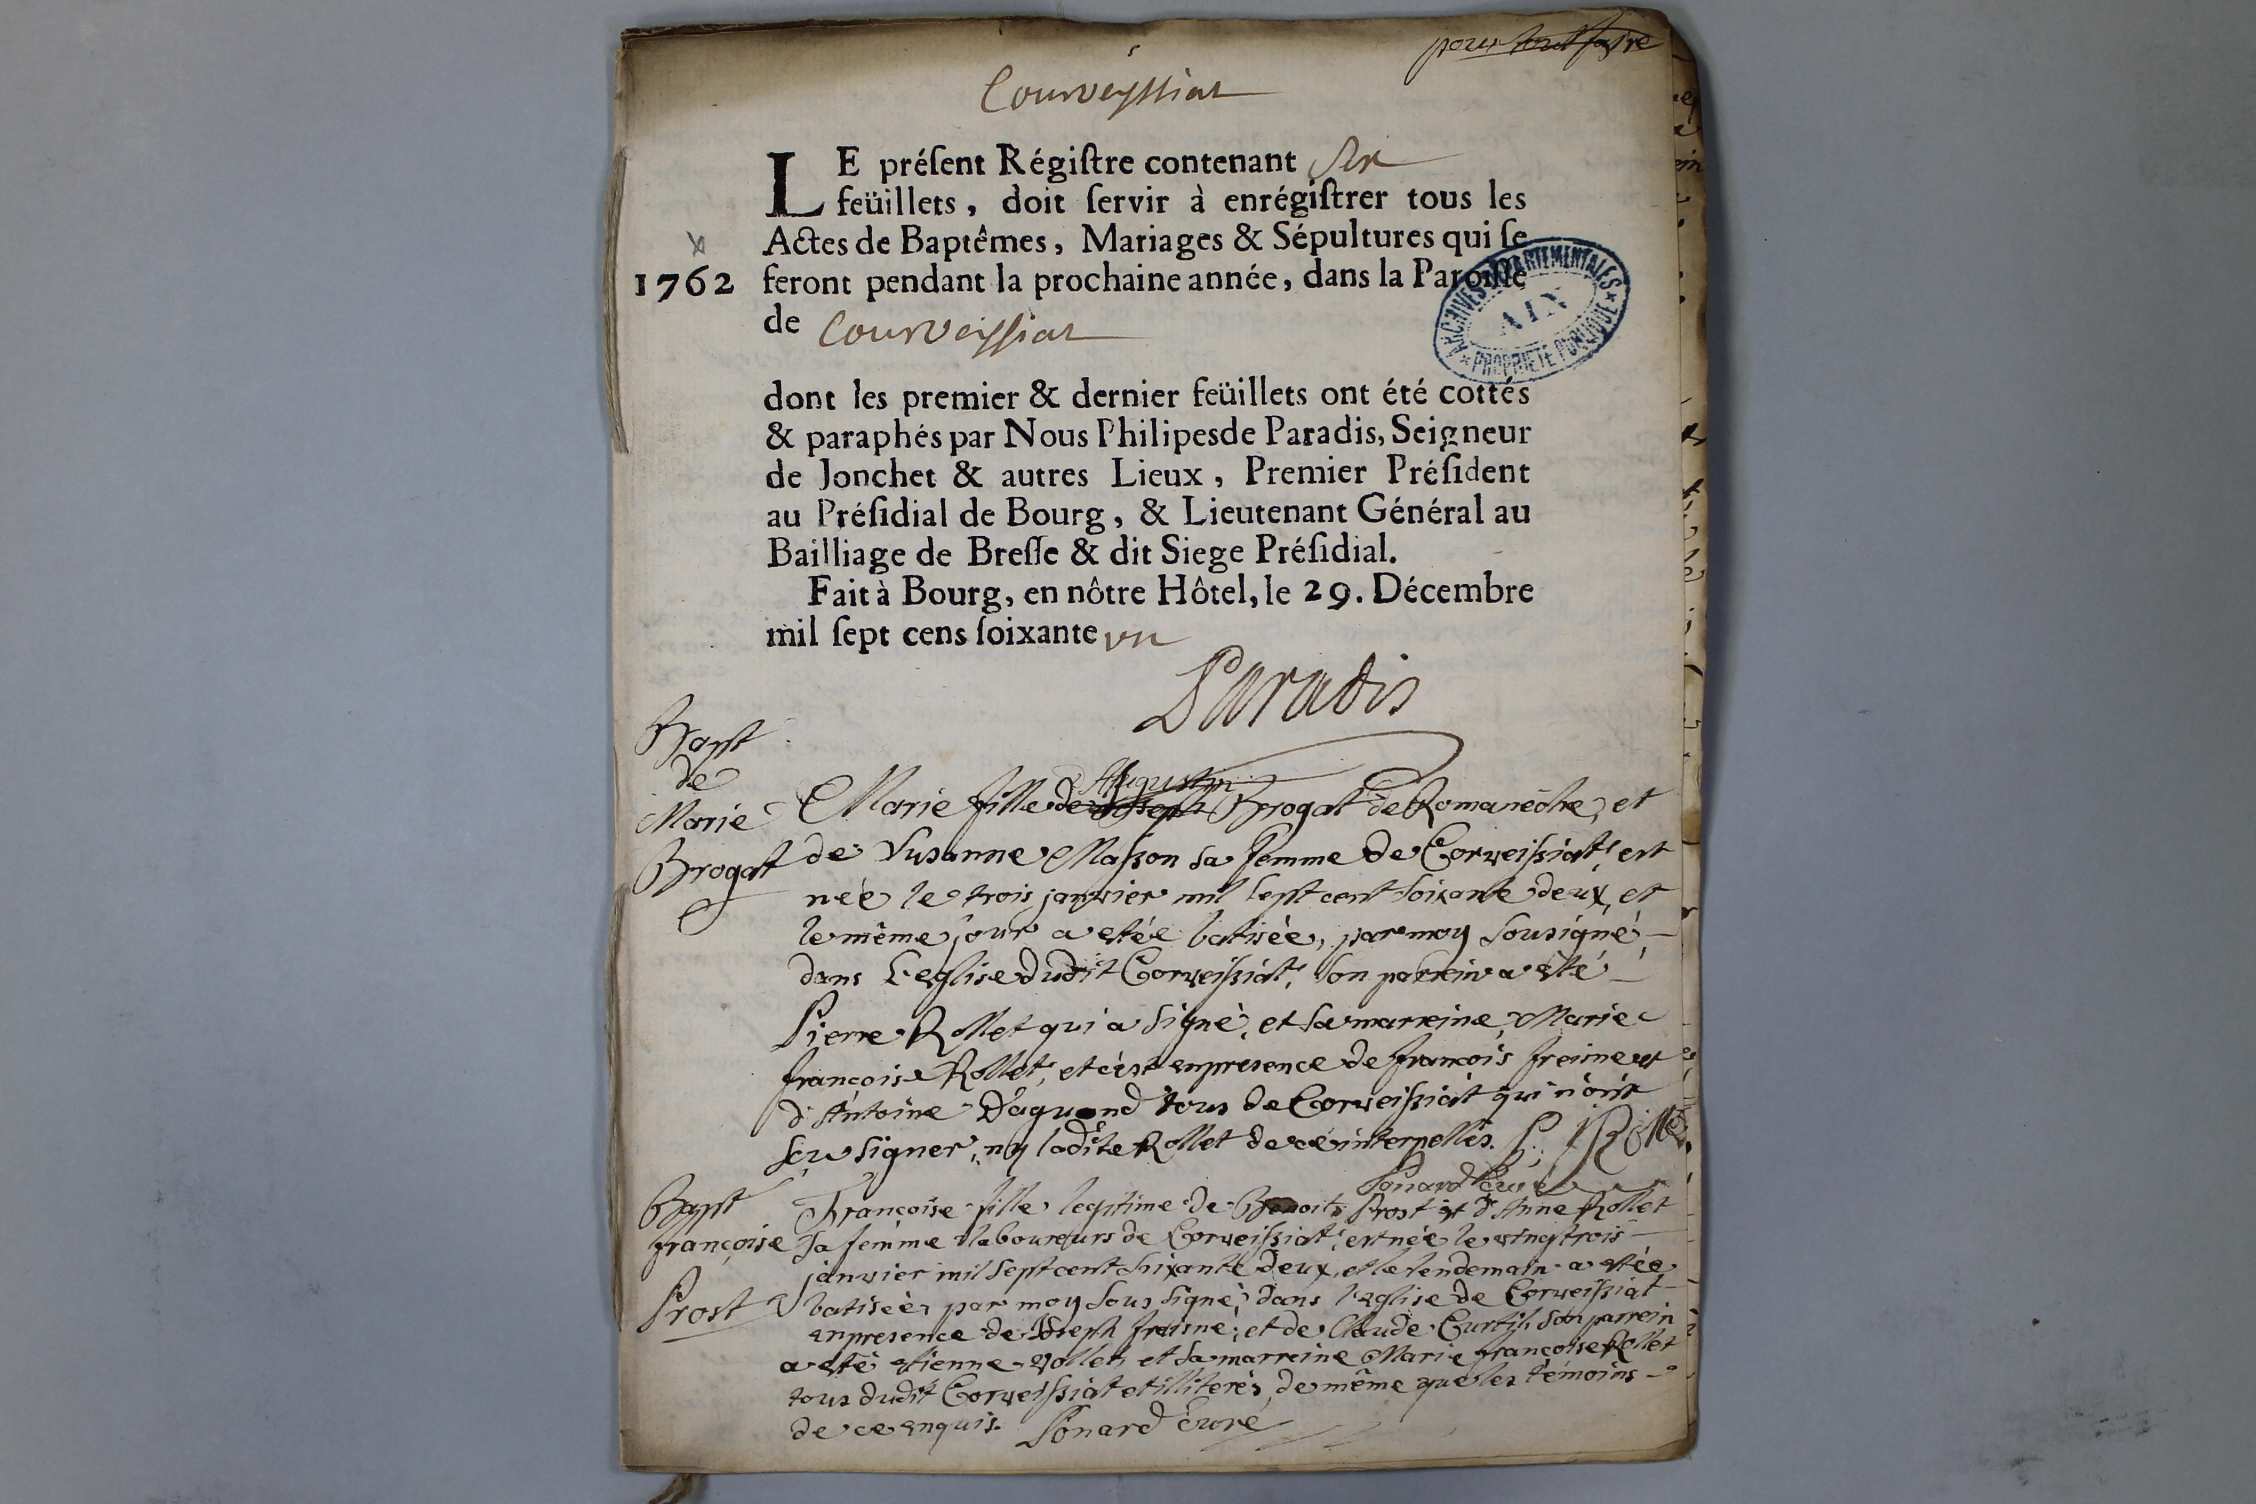 pour tout faire
Courveyssiat
LE préſent Régiſtre contenant Six
feüillets, doit ſervir à enrégiſtrer tous les
Actes de Baptêmes, Mariages & Sépultures qui ſe
1762 feront pendant la prochaine année, dans la Paroiſſe
de Courveissiat
ARCHIVES DÉPARTEMENTALES
AIN
PROPRIÉTÉ PUBLIQUE
dont les premier & dernier feüillets ont été cottés
& paraphés par Nous Philipes de Paradis, Seigneur
de Jonchet & autres Lieux, Premier Préſident
au Préſidial de Bourg, & Lieutenant Général au
Bailliage de Breſſe & dit Siege Préſidial.
Fait à Bourg, en nôtre Hôtel, le 29. Décembre
mil ſept cens ſoixante un
Paradis
Bapt
de
Marie
Brogat
Augustin
Marie fille de Joseph Brogat de Romanêche, et
de Susanne Masson sa femme de Corveissiat, est
née le trois janvier mil sept cent soixante deux, et
le même jour a estée batisée, par moy sousigné
dans l'eglise dudit Corveissiat, son parrein a esté
Pierre Rollet qui a signé, et sa marreine Marie
françoise Rollet, et c'est en presence de françois freisne et
d'Antoine Daguond tous de Corveissiat qui n'ont
sçu signer, ny ladite Rollet de ce interpellés. P. Rollet
Ponard Curé
Bapt
françoise
Prost
Françoise fille legitime de Benoit Prost et d'Anne Rollet
sa femme laboureurs de Corveissiat, est née le vingt trois
janvier mil sept cent soixante deux, et le lendemain a estée
batisée par moy sous signé, dans l'eglise de Corveissiat
en presence de Joseph freisne, et de Claude Curtil, son parrein
a esté etienne rollet, et sa marreine Marie françoise Rollet
tous dudit Corveissiat et illiterés, de même que les témoins
de ce enquis. Ponard Curé